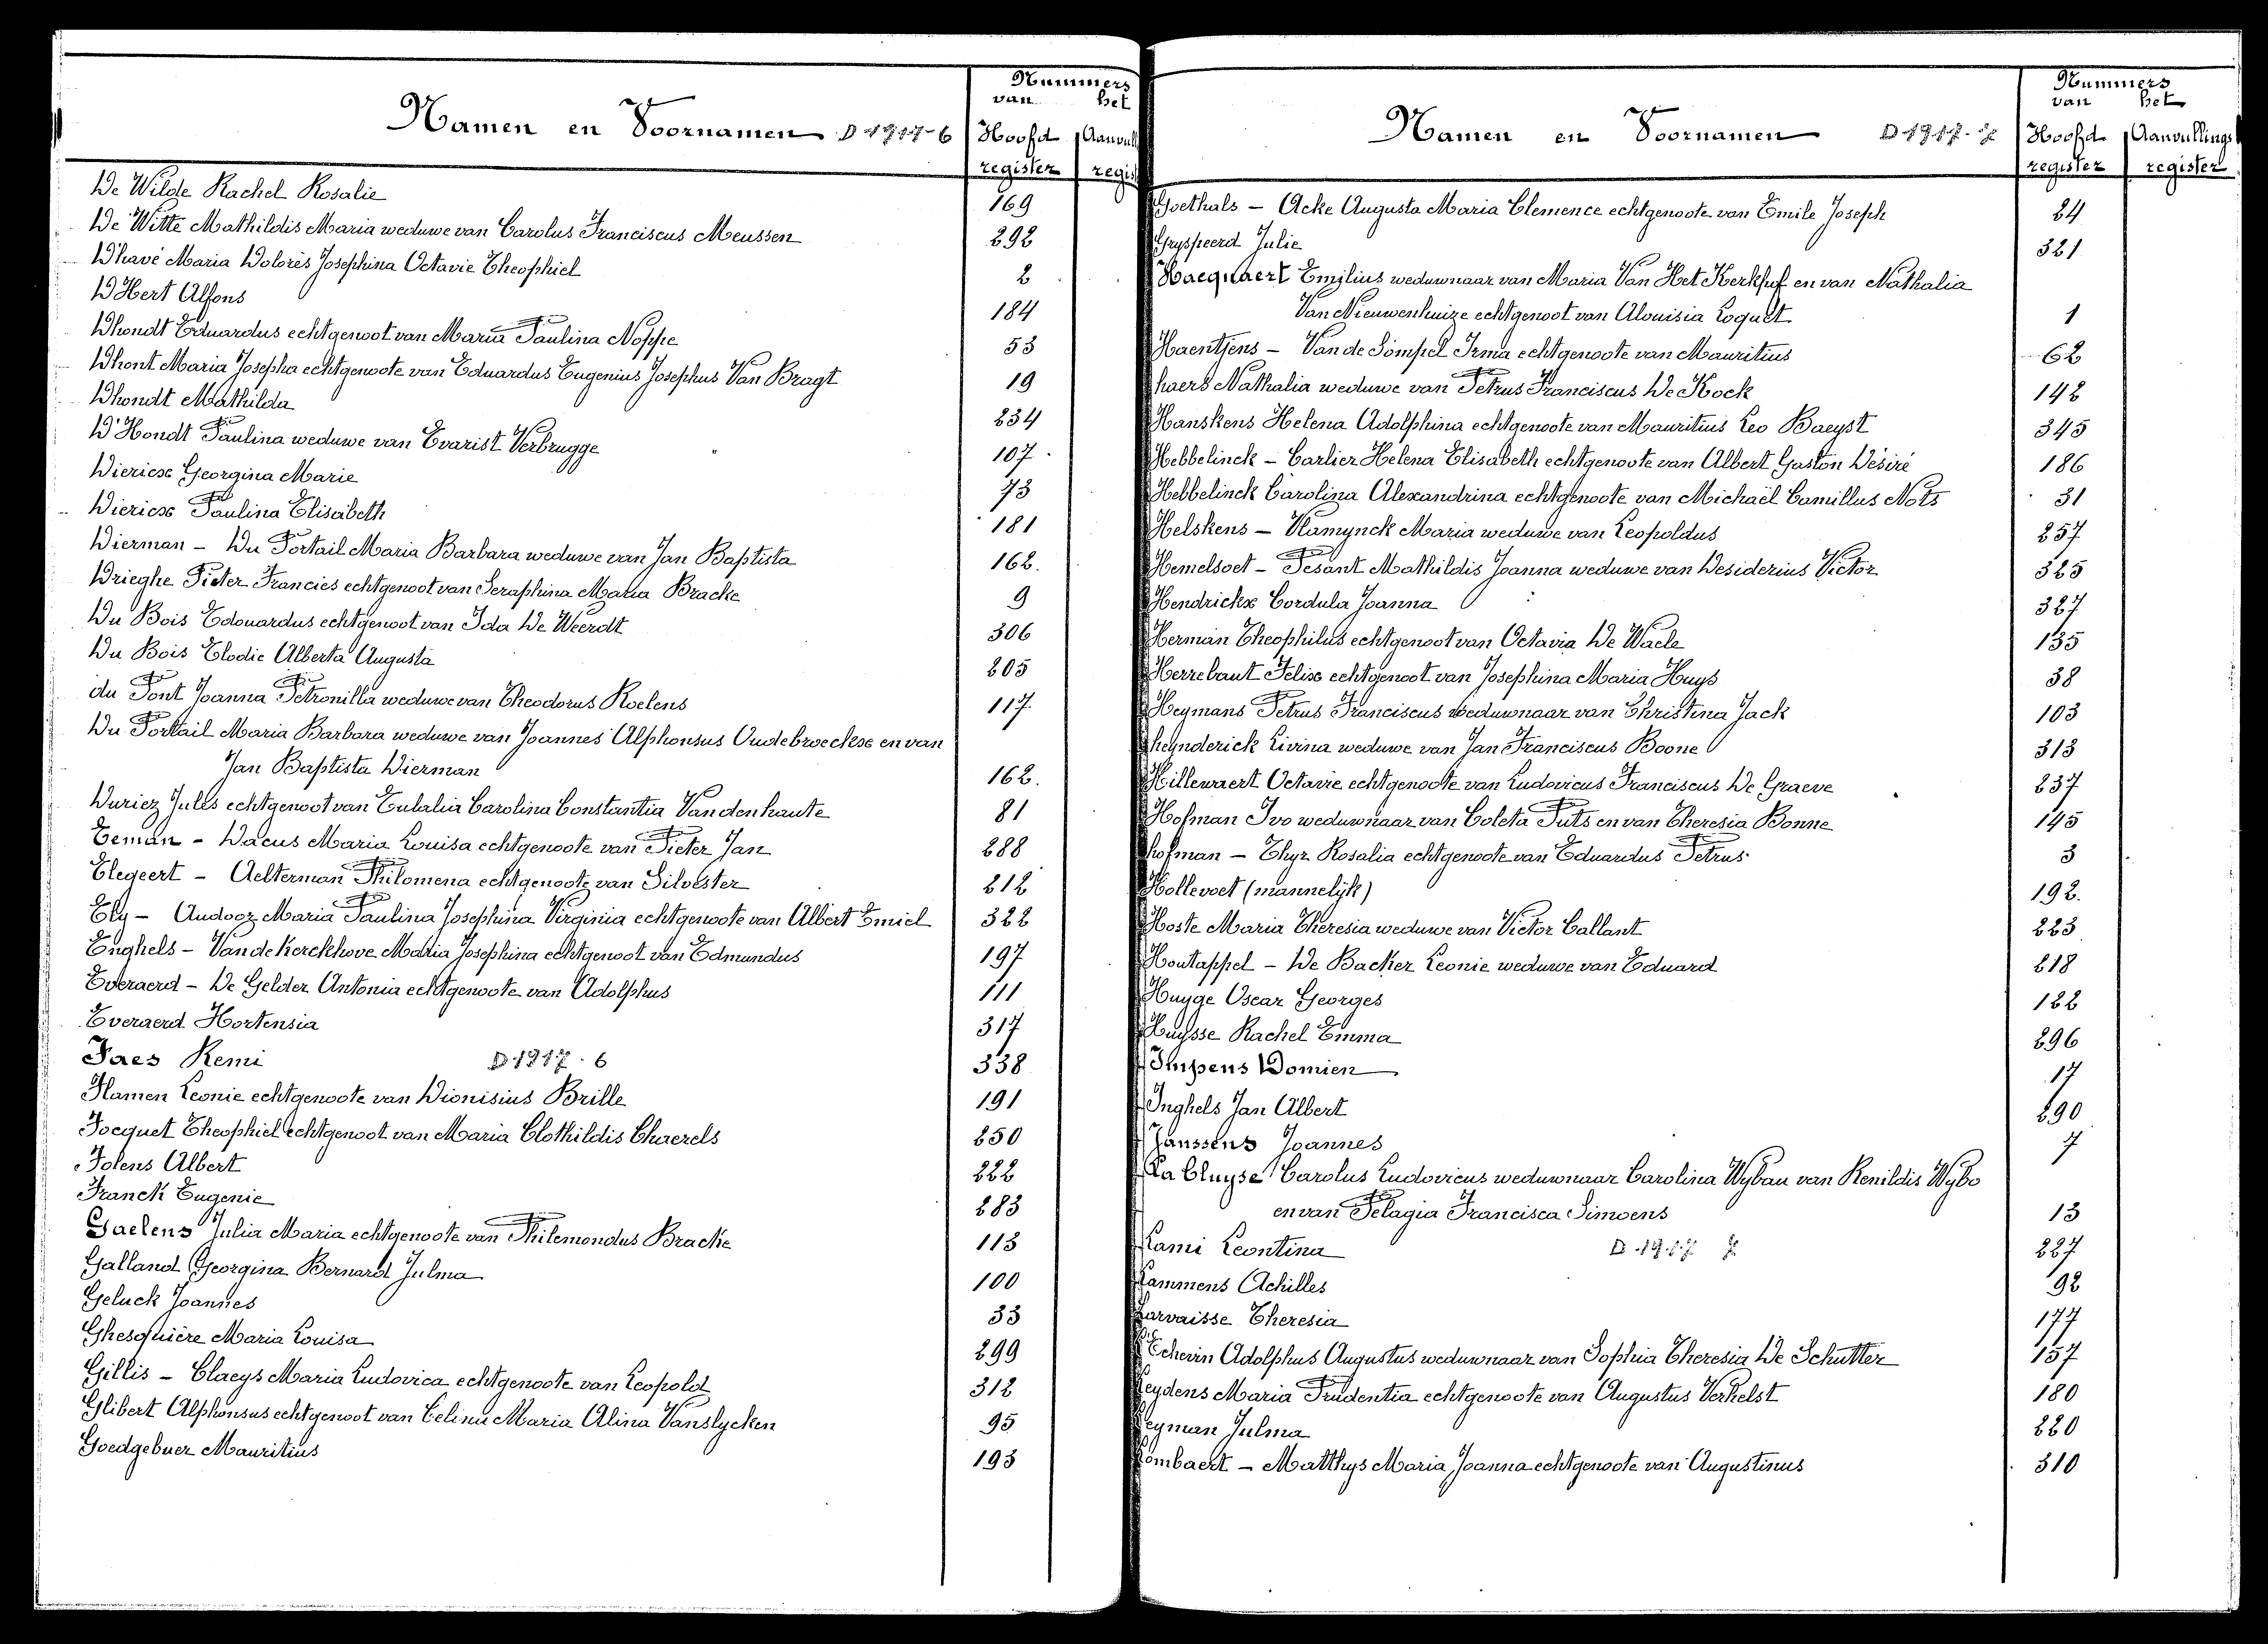 Nummers
van het
Namen en Voornamen D 1917-6 Hoofd Aanvull
register regis
De Wilde Rachel Rosalie 169
De Witte Mathildis Maria weduwe van Carolus Franciscus Meussen 292
D'havé Maria Dolorès Josephina Octavie Theophiel 2
D'Hert Alfons 184
Dhondt Eduardus echtgenoot van Maria Paulina Noppe 53
Dhont Maria Josepha echtgenoote van Eduardus Eugenius Josephus Van Bragt 19
Dhondt Mathilda 234
D'Hondt Paulina weduwe van Evarist Verbrugge 107
Diericx Georgina Marie 73
Diericx Paulina Elisabeth 181
Dierman - Du Portail Maria Barbara weduwe van Jan Baptista 162.
Drieghe Pieter Francies echtgenoot van Seraphina Maria Bracke 9
Du Bois Edouardus echtgenoot van Ida De Weerdt 306
Du Bois Elodie Alberta Augusta 205
du Pont Joanna Petronilla weduwe van Theodorus Roelens 117
Du Portail Maria Barbara weduwe van Joannes Alphonsus Oudebroeckx en van
Jan Baptista Dierman 162.
Duriez Jules echtgenoot van Eulalia Carolina Constantia Vandenhaute 81
Eeman - Dacus Maria Louisa echtgenoote van Pieter Jan 288
Elegeert - Aelterman Philomena echtgenoote van Silvester 212
Ely - Audooz Maria Paulina Josephina Virginia echtgenoote van Albert Emiel 322
Enghels - Van de Kerckhove Maria Josephina echtgenoot van Edmundus 197
Everaerd - De Gelder Antonia echtgenoote van Adolphus 111
Everaerd Hortensia 317
Faes Remi D 1917-6 338
Flamen Leonie echtgenoote van Dionisius Brille 191
Focquet Theophiel echtgenoot van Maria Clothildis Chaerels 250
Folens Albert 222
Franck Eugenie 283
Gaelens Julia Maria echtgenoote van Philemondus Bracke 113
Galland Georgina Bernard Julma 100
Geluck Joannes 33
Ghesquière Maria Louisa 299
Gillis - Claeys Maria Ludovica echtgenoote van Leopold 312
Glibert Alphonsus echtgenoot van Celina Maria Alina Vanslycken 95
Goedgebuer Mauritius 193
Nummers
van het
Namen en Voornamen D 1917-7 Hoofd Aanvullings
register register
Goethals - Acke Augusta Maria Clemence echtgenoote van Emile Joseph 24
Gryspeerd Julie 321
Hacquaert Emilius weduwnaar van Maria Van Het Kerkhof en van Nathalia
Van Nieuwenhuize echtgenoot van Alouisia Loquet 1
Haentjens - Van de Sompel Irma echtgenoote van Mauritius 62
haers Nathalia weduwe van Petrus Franciscus De Kock 142
Hanskens Helena Adolphina echtgenoote van Mauritius Leo Baeyst 345
Hebbelinck - Carlier Helena Elisabeth echtgenoote van Albert Gaston Désiré 186
Hebbelinck Carolina Alexandrina echtgenoote van Michaël Camillus Nots 31
Helskens - Vlamynck Maria weduwe van Leopoldus 257
Hemelsoet - Pesant Mathildis Joanna weduwe van Desiderius Victor 325
Hendrickx Cordula Joanna 327
Herman Theophilus echtgenoot van Octavia De Waele 135
Herrebaut Felix echtgenoot van Josephina Maria Huys 38
Heymans Petrus Franciscus weduwnaar van Christina Jack 103
heynderick Livina weduwe van Jan Franciscus Boone 313
Hillewaert Octavie echtgenoote van Ludovicus Franciscus De Graeve 237
Hofman Ivo weduwnaar van Coleta Puts en van Theresia Bonne 145
hofman - Thyr Rosalia echtgenoote van Eduardus Petrus 3
Hollevoet (mannelijk) 192.
Hoste Maria Theresia weduwe van Victor Callant 223
Houtappel - De Backer Leonie weduwe van Eduard 218
Huyge Oscar Georges 122
Huysse Rachel Emma 296
Impens Domien 17
Inghels Jan Albert 290
Janssens Joannes 7
La Cluyse Carolus Ludovicus weduwnaar Carolina Wybau van Renildis Wybo
en van Pelagia Francisca Simoens 13
Lami Leontina D 1917 7 227
Lammens Achilles 92
Larvaisse Theresia 177
L'Echevin Adolphus Augustus weduwnaar van Sophia Theresia De Schutter 157
Leydens Maria Prudentia echtgenoote van Augustus Verhelst 180
Leyman Julma 220
Lombaert - Matthys Maria Joanna echtgenoote van Augustinus 310